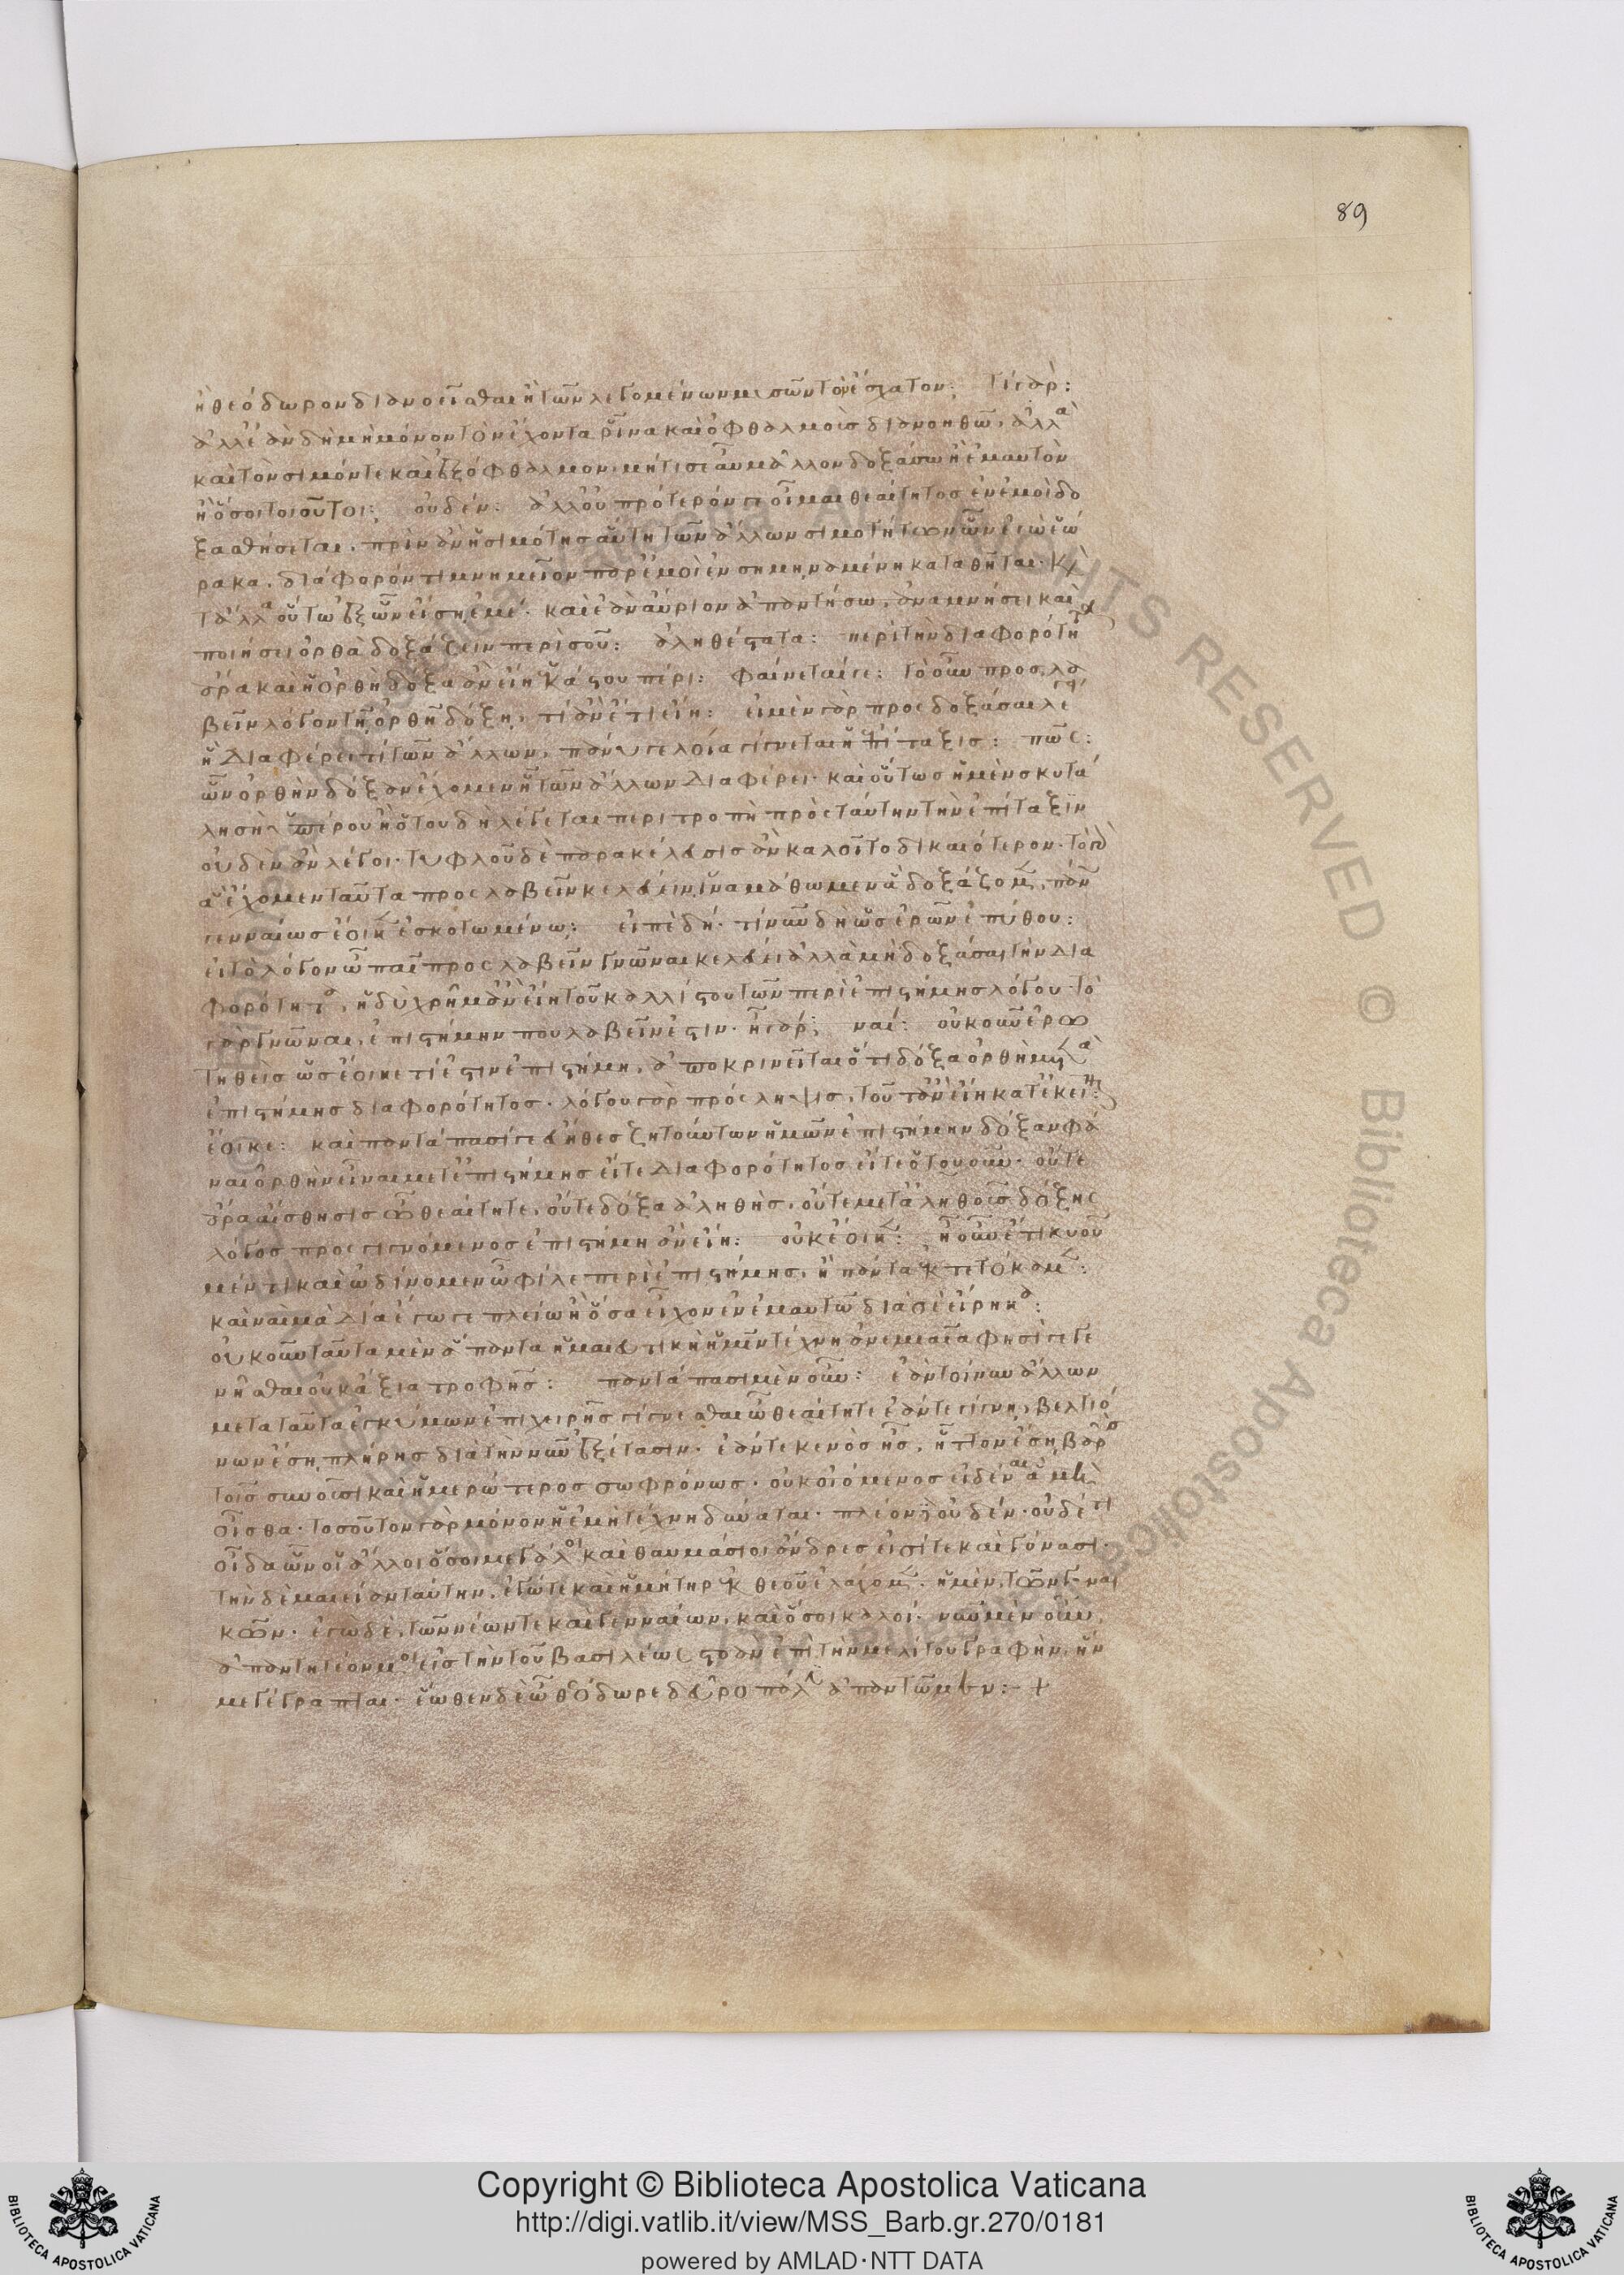 89
ἢ θεόδωρον διανοεῖσθαι ἢ τῶν λεγομένων μυσῶν τὸν ἔσχατον; τί γάρ:
ἀλλ' ἐὰν δὴ μὴ μόνον τὸν ἔχοντα ῥῖνα καὶ ὀφθαλμοὺς διανοηθῶ, ἀλλὰ
καὶ τὸν σιμόν τε καὶ ἐξόφθαλμον, μή τι σὲ αὖ μᾶλλον δοξάσω ἢ ἐμαυτὸν
ἢ ὅσοι τοιοῦτοι; οὐδέν: ἀλλ' οὐ πρότερόν γε οἶμαι θεαίτητος ἐν ἐμοὶ δο
ξασθήσεται, πρὶν ἂν ἡ σιμότης αὕτη τῶν ἄλλων σιμοτήτων ὧν ἐγὼ ἑώ
ρακα, διάφορόν τι μνημεῖον παρ' ἐμοὶ ἐνσημηναμένη κατάθηται· καὶ
τἆλλα οὕτω ἐξ ὧν εἶ σύ, ἐμέ· καὶ ἐὰν αὔριον ἀπαντήσω, ἀναμνήσει καὶ
ποιήσει ὀρθὰ δοξάζειν περὶ σοῦ: ἀληθέστατα: περὶ τὴν διαφορότητα
ἄρα καὶ ἡ ὀρθὴ δόξα ἂν εἴη ἑκάστου πέρι: φαίνεταί γε: τὸ οὖν προσλα
βεῖν λόγον τῇ ὀρθῇ δόξῃ, τί ἂν ἔτι εἴη: εἰ μὲν γὰρ προσδοξάσαι λέγει
ᾗ διαφέρει τι τῶν ἄλλων, πάνυ γελοία γίγνεται ἡ ἐπίταξις: πῶς:
ὧν ὀρθὴν δόξαν ἔχομεν ᾗ τῶν ἄλλων διαφέρει· καὶ οὕτως ἡ μὲν σκυτά
λης ἢ ὑπέρου ἢ ὅτου δὴ λέγεται περιτροπὴ πρὸς ταύτην τὴν ἐπίταξιν
οὐδὲν ἂν λέγοι· τυφλοῦ δὲ παρακέλευσις ἂν καλοῖτο δικαιότερον· τὸ γὰρ
ἃ ἔχομεν ταῦτα προσλαβεῖν κελεύειν, ἵνα μάθωμεν ἃ δοξάζομεν, πάνυ
γενναίως ἔοικεν ἐσκοτωμένῳ: εἰπὲ δή· τί νῦν δὴ ὡς ἐρῶν ἐπύθου:
εἰ τὸ λόγον ὦ παῖ προσλαβεῖν γνῶναι κελεύει ἀλλὰ μὴ δοξάσαι τὴν δια
φορότητα, ἡδὺ χρῆμ' ἂν εἴη τοῦ καλλίστου τῶν περὶ ἐπιστήμης λόγου· τὸ
γὰρ γνῶναι, ἐπιστήμην που λαβεῖν ἐστιν· ἦ γάρ; ναί: οὐκοῦν ἐρω
τηθεὶς ὡς ἔοικε τί ἐστιν ἐπιστήμη, ἀποκρινεῖται ὅτι δόξα ὀρθὴ μετὰ
ἐπιστήμης διαφορότητος· λόγου γὰρ πρόσληψις, τοῦτ' ἂν εἴη κατ' ἐκεῖνον:
ἔοικε: καὶ παντάπασί γε εὔηθες ζητούντων ἡμῶν ἐπιστήμην δόξαν φά
ναι ὀρθὴν εἶναι μετ' ἐπιστήμης εἴτε διαφορότητος εἴτε ὁτουοῦν· οὔτε
ἄρα αἴσθησις ὦ θεαίτητε, οὔτε δόξα ἀληθής, οὔτε μετ' ἀληθοῦς δόξης
λόγος προσγιγνόμενος ἐπιστήμη ἂν εἴη: οὐκ ἔοικεν: ἦ οὖν ἔτι κυοῦ
μέν τι καὶ ὠδίνομεν ὦ φίλε περὶ ἐπιστήμης, ἢ πάντα ἐκτετόκαμεν:
καὶ ναὶ μὰ δία ἔγωγε πλείω ἢ ὅσα εἶχον ἐν ἐμαυτῷ διὰ σὲ εἴρηκα:
οὐκοῦν ταῦτα μὲν ἅπαντα ἡ μαιευτικὴ ἡμῖν τέχνη ἀνεμιαῖα φησὶ γεγε
νῆσθαι οὐκ ἄξια τροφῆς: παντάπασι μὲν οὖν: ἐὰν τοίνυν ἄλλων
μετὰ ταῦτα ἐγκύμων ἐπιχειρῇς γίγνεσθαι ὦ θεαίτητε ἐάν τε γίγνῃ, βελτιό
νων ἔσῃ πλήρης διὰ τὴν νῦν ἐξέτασιν· ἐάν τε κενὸς ᾖς, ἧττον ἔσῃ βαρὺς
τοῖς συνοῦσι καὶ ἡμερώτερος σωφρόνως· οὐκ οἰόμενος εἰδέναι ἃ μὴ
οἶσθα· τοσοῦτον γὰρ μόνον ἡ ἐμὴ τέχνη δύναται· πλέον δὲ οὐδέν· οὐδέ τι
οἶδα ὧν οἱ ἄλλοι ὅσοι μεγάλοι καὶ θαυμάσιοι ἄνδρες εἰσί τε καὶ γεγόνασι·
τὴν δὲ μαιείαν ταύτην, ἐγώ τε καὶ ἡ μήτηρ ἐκ θεοῦ ἐλάχομεν· ἡ μὲν, τῶν γυναι
κῶν· ἐγὼ δὲ, τῶν νέων τε καὶ γενναίων, καὶ ὅσοι καλοί· νῦν μὲν οὖν
ἀπαντητέον μοι εἰς τὴν τοῦ βασιλέως στοὰν ἐπὶ τὴν μελίτου γραφὴν, ἥν
με γέγραπται· ἕωθεν δὲ ὦ θεόδωρε δεῦρο πάλιν ἀπαντῶμεν:- +
Copyright © Biblioteca Apostolica Vaticana
http://digi.vatlib.it/view/MSS_Barb.gr.270/0181
powered by AMLAD·NTT DATA